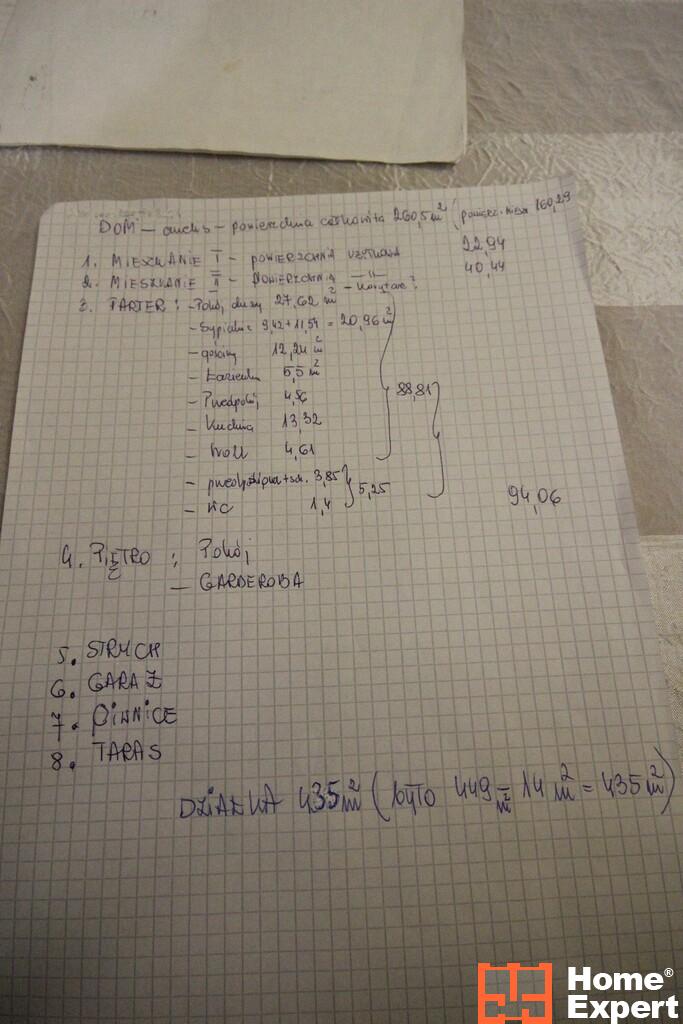 DOM — powierzchnia całkowita 260,5 m² (powierz. miesz 160,29
1. MIESZKANIE I – POWIERZCHNIA UŻYTKOWA 22,94
2. MIESZKANIE II – POWIERZCHNIA —II— 40,44
3. PARTER : – Pokój duży 27,62 m² – korytarz?
– Sypialnie 9,42 + 11,54 = 20,96 m²
– gościny 12,24 m²
– Łazienka 5,5 m²
– Przedpokój 4,56
88,81
– Kuchnia 13,32
– Holl 4,61
– 3,85
5,25
– WC 1,4
94,06
4. PIĘTRO : Pokój
— GARDEROBA
5. STRYCH
6. GARAŻ
7. PIWNICE
8. TARAS
DZIAŁKA 435 m² (było 449 m² – 14 m² = 435 m²)
Home® Expert